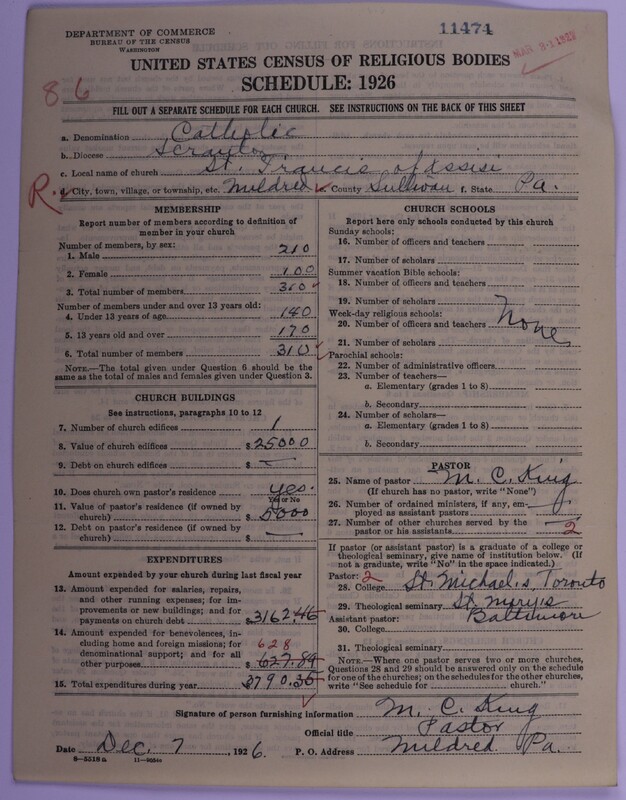 DEPARTMENT OF COMMERCE
BUREAU OF THE CENSUS
WASHINGTON
11474
MAR 31 1927
UNITED STATES CENSUS OF RELIGIOUS BODIES
SCHEDULE: 1926
86
FILL OUT A SEPARATE SCHEDULE FOR EACH CHURCH. SEE INSTRUCTIONS ON THE BACK OF THIS SHEET
a. Denomination Catholic
b. Diocese Scranton
c. Local name of church St. Francis of Assisi
R d. City, town, village, or township, etc. Mildred County Sullivan f. State Pa.
MEMBERSHIP
Report number of members according to definition of
member in your church
Number of members, by sex:
1. Male 210
2. Female 100
3. Total number of members 310
Number of members under and over 13 years old:
4. Under 13 years of age 140
5. 13 years old and over 170
6. Total number of members 310
NOTE.—The total given under Question 6 should be the
same as the total of males and females given under Question 3.
CHURCH BUILDINGS
See instructions, paragraphs 10 to 12
7. Number of church edifices 1
8. Value of church edifices $25000
9. Debt on church edifices $ —
10. Does church own pastor's residence yes.
Yes or No
11. Value of pastor's residence (if owned by
church) $5000
12. Debt on pastor's residence (if owned by
church) $ —
EXPENDITURES
Amount expended by your church during last fiscal year
13. Amount expended for salaries, repairs,
and other running expenses; for im-
provements or new buildings; and for
payments on church debt $3162.46
14. Amount expended for benevolences, in-
cluding home and foreign missions; for
denominational support; and for all
other purposes 628 $627.89
15. Total expenditures during year $3790.35
CHURCH SCHOOLS
Report here only schools conducted by this church
Sunday schools:
16. Number of officers and teachers
17. Number of scholars
Summer vacation Bible schools:
18. Number of officers and teachers
19. Number of scholars
Week-day religious schools:
20. Number of officers and teachers None
21. Number of scholars
Parochial schools:
22. Number of administrative officers
23. Number of teachers—
a. Elementary (grades 1 to 8)
b. Secondary
24. Number of scholars—
a. Elementary (grades 1 to 8)
b. Secondary
PASTOR
25. Name of pastor M. C. King
(If church has no pastor, write "None")
26. Number of ordained ministers, if any, em-
ployed as assistant pastors
27. Number of other churches served by the
pastor or his assistants 2
If pastor (or assistant pastor) is a graduate of a college or
theological seminary, give name of institution below. (If
not a graduate, write "No" in the space indicated.)
Pastor: 2
28. College St. Michael's, Toronto
29. Theological seminary St. Mary's
Assistant pastor: Baltimore
30. College
31. Theological seminary
NOTE.—Where one pastor serves two or more churches,
Questions 28 and 29 should be answered only on the schedule
for one of the churches; on the schedules for the other churches,
write "See schedule for church."
Signature of person furnishing information M. C. King
Official title Pastor
Date Dec. 7, 1926. P. O. Address Mildred Pa.